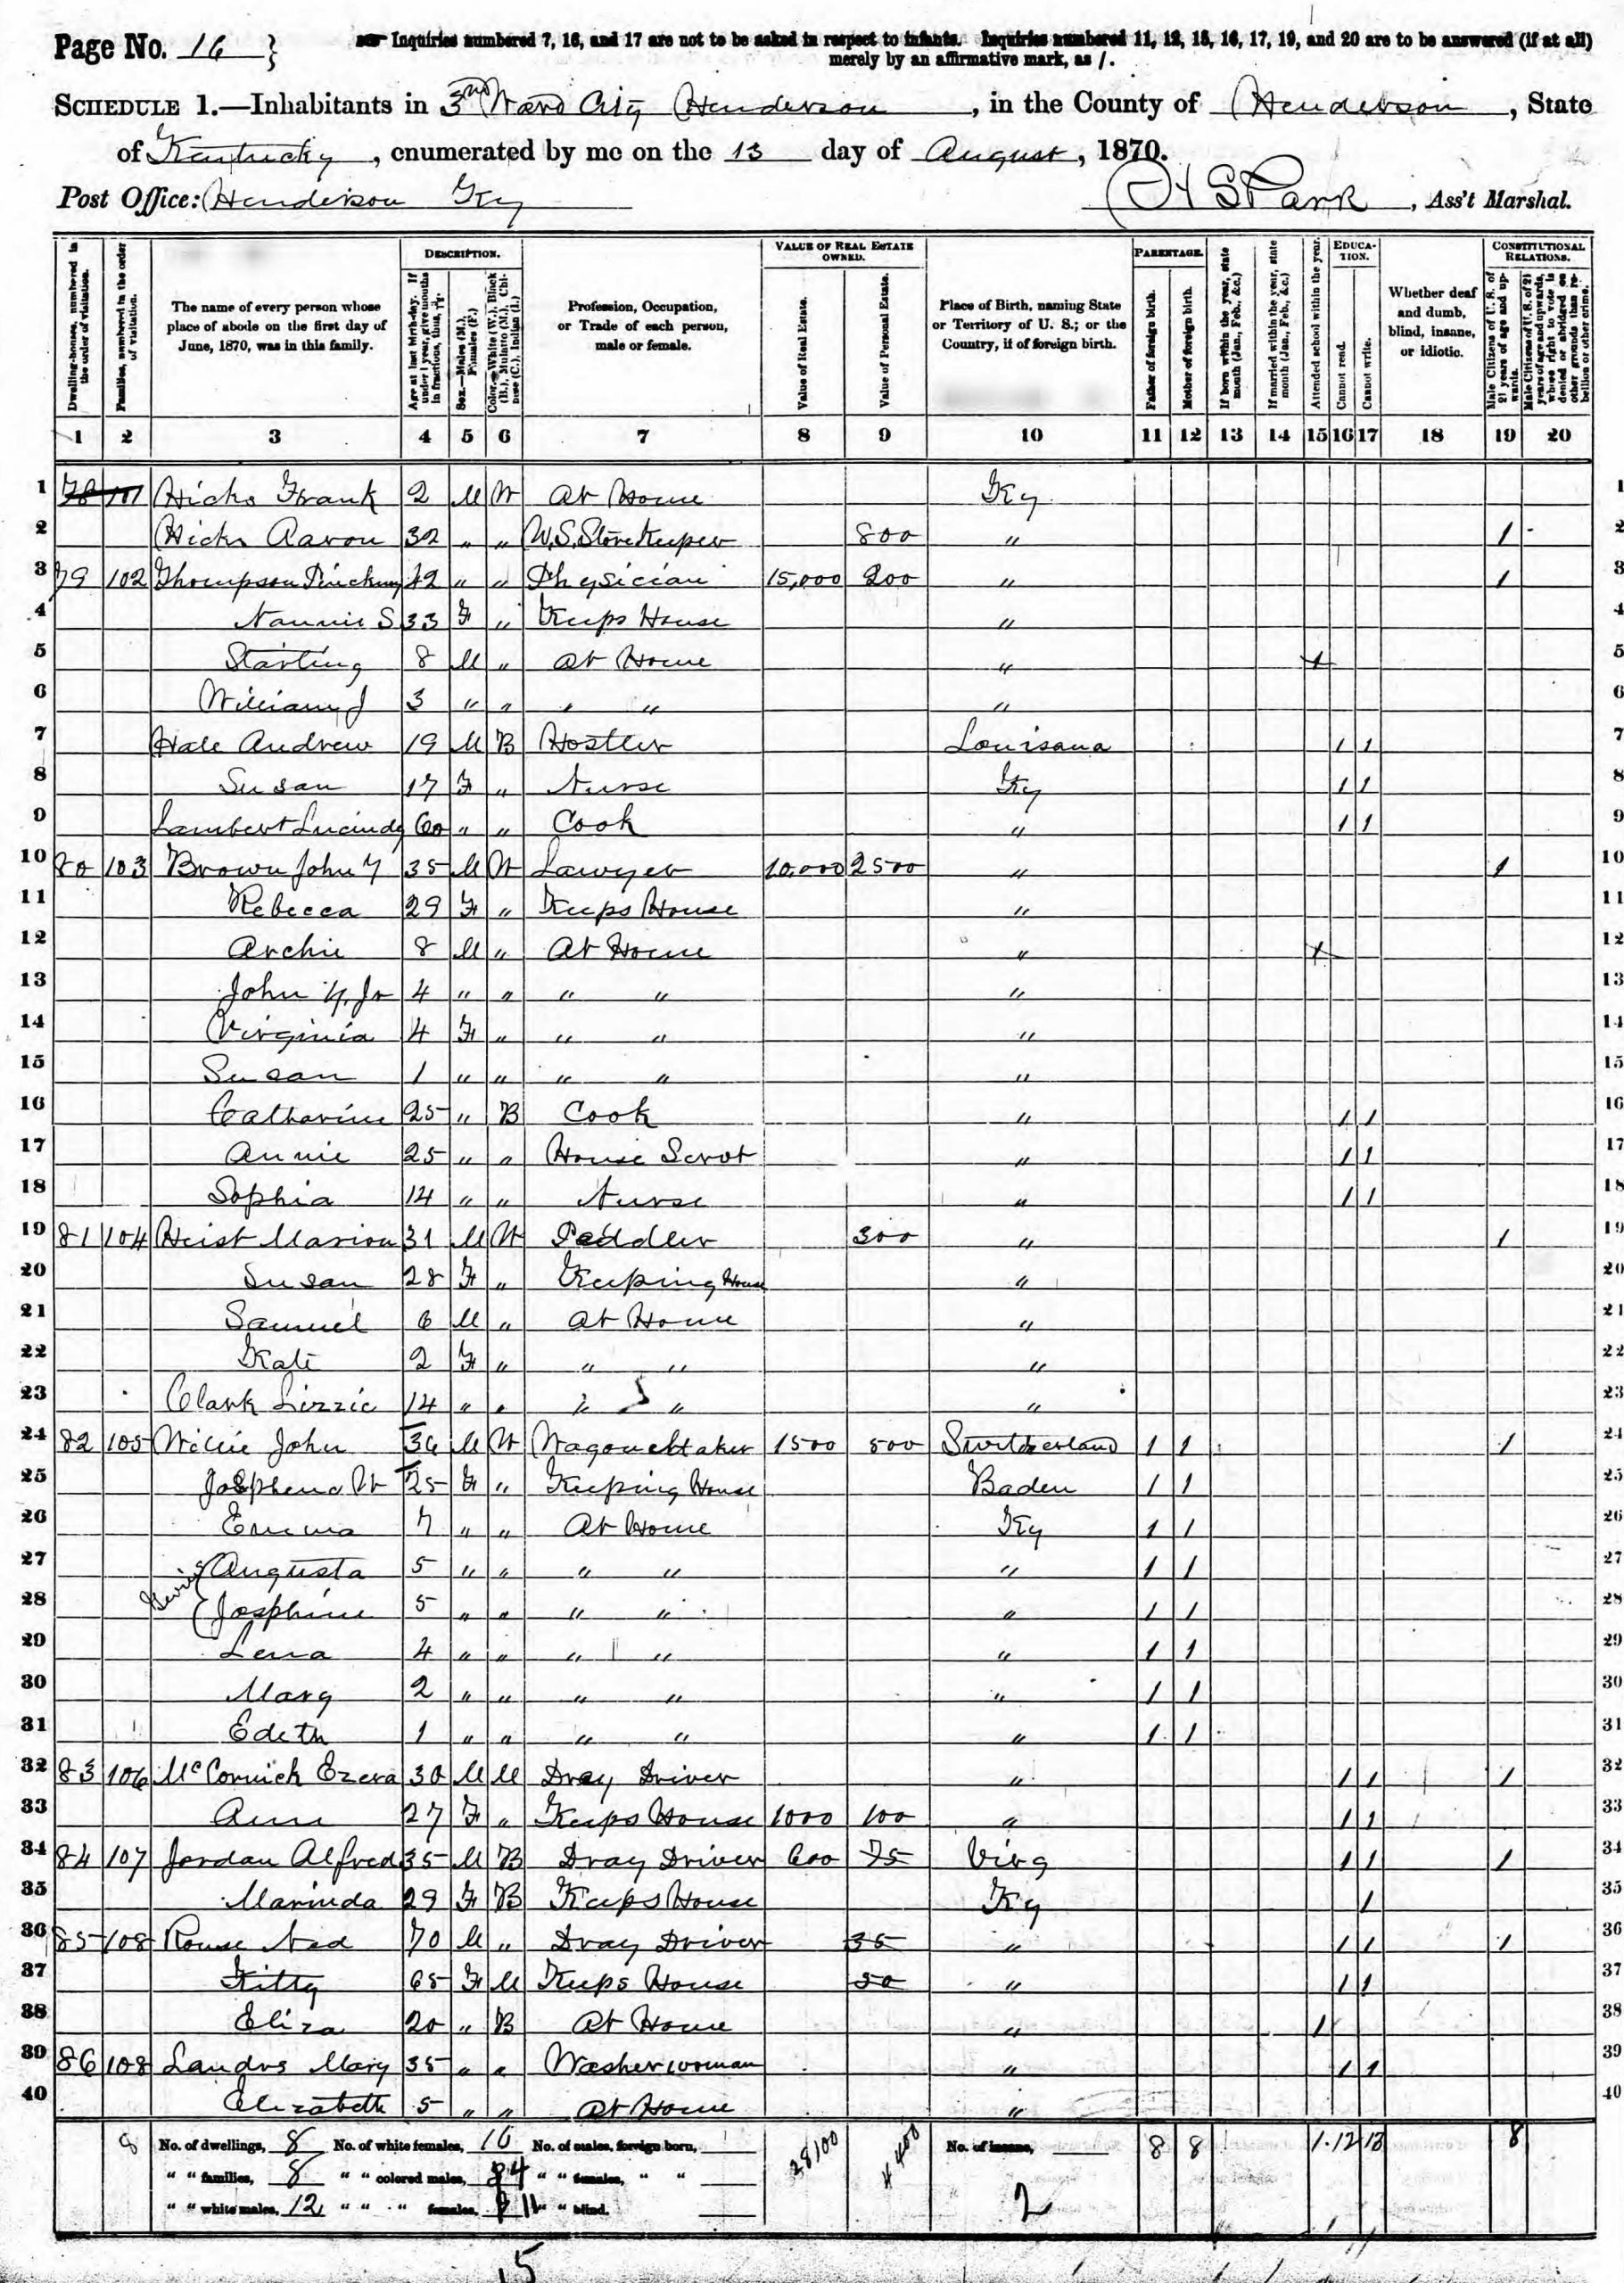 Page No. 16 }
Inquiries numbered 7, 16, and 17 are not to be asked in respect to infants. Inquiries numbered 11, 12, 15, 16, 17, 19, and 20 are to be answered (if at all)
merely by an affirmative mark, as /.
SCHEDULE 1.—Inhabitants in 3rd Ward City Henderson, in the County of Henderson, State
of Kentucky, enumerated by me on the 13 day of August, 1870.
Post Office: Henderson Ky
Park, Ass't Marshal.
Dwelling-houses, numbered in the order of visitation.
Families, numbered in the order of visitation.
The name of every person whose place of abode on the first day of June, 1870, was in this family.
DESCRIPTION.
Age at last birth-day. If under 1 year, give months in fractions, thus,
Sex.—Males (M.), Females (F.)
Color.—White (W.), Black (B.), Mulatto (M.), Chinese (C.), Indian (I.)
Profession, Occupation, or Trade of each person, male or female.
VALUE OF REAL ESTATE OWNED.
Value of Real Estate.
Value of Personal Estate.
Place of Birth, naming State or Territory of U. S.; or the Country, if of foreign birth.
PARENTAGE.
Father of foreign birth.
Mother of foreign birth.
If born within the year, state month (Jan., Feb., &c.)
If married within the year, state month (Jan., Feb., &c.)
Attended school within the year.
EDUCATION.
Cannot read.
Cannot write.
Whether deaf and dumb, blind, insane, or idiotic.
CONSTITUTIONAL RELATIONS.
Male Citizens of U. S. of 21 years of age and upwards.
Male Citizens of U. S. of 21 years of age and upwards, whose right to vote is denied or abridged on other grounds than rebellion or other crime.
1 2 3 4 5 6 7 8 9 10 11 12 13 14 15 16 17 18 19 20
1 78 101 Hicks Frank 2 M W At Home Ky 1
2 Hicks Aaron 32 " " W.S. Store Keeper 800 " 1 2
3 79 102 Thompson Pinckney 42 " " Physician 15,000 200 " 1 3
4 Nannie S 33 F " Keeps House " 4
5 Starling 8 M " At Home " 1 5
6 William J 3 " " " " " 6
7 Hale Andrew 19 M B Hostler Louisana 1 1 7
8 Susan 17 F " Nurse Ky 1 1 8
9 Lambert Lucinda 60 " " Cook " 1 1 9
10 80 103 Brown John Y 35 M W Lawyer 10,000 2500 " 1 10
11 Rebecca 29 F " Keeps House " 11
12 Archie 8 M " At Home " 1 12
13 John Y. Jr 4 " " " " " 13
14 Virginia 4 F " " " " 14
15 Susan 1 " " " " " 15
16 Catharine 25 " B Cook " 1 1 16
17 Annie 25 " " House Servt " 1 1 17
18 Sophia 14 " " Nurse " 1 1 18
19 81 104 Heist Marion 31 M W Peddler 300 " 1 19
20 Susan 28 F " Keeping House " 20
21 Samuel 6 M " At Home " 21
22 Kate 2 F " " " " 22
23 Clark Lizzie 14 " " " " " 23
24 82 105 Willie John 36 M W Wagon Maker 1500 500 Switzerland 1 1 1 24
25 Josephena W 25 F " Keeping House Baden 1 1 25
26 Emma 7 " " At Home Ky 1 1 26
27 Augusta 5 " " " " " 1 1 27
28 Josphine 5 " " " " " 1 1 28
29 Lena 4 " " " " " 1 1 29
30 Mary 2 " " " " " 1 1 30
31 Edeth 1 " " " " " 1 1 31
32 83 106 McCormick Ezera 30 M M Dray Driver " 1 1 1 32
33 Ann 27 F " Keeps House 1000 100 " 1 1 33
34 84 107 Jordan Alfred 35 M B Dray Driver 600 75 Virg 1 1 1 34
35 Marinda 29 F B Keeps House Ky 1 35
36 85 108 Rouse Ned 70 M " Dray Driver 35 " 1 1 1 36
37 Kitty 65 F M Keeps House 50 " 1 1 37
38 Eliza 20 " B At Home " 1 38
39 86 108 Landrs Mary 35 " " Washerwoman " 1 1 39
40 Elizabeth 5 " " At Home " 40
8 No. of dwellings, 8 No. of white females, 16 No. of males, foreign born, 28100 4400 No. of insane, 8 8 1 12 13 8
" " families, 8 " " colored males, 4 " " females, " "
" " white males, 12 " " " females, 11 " " blind,
2
15